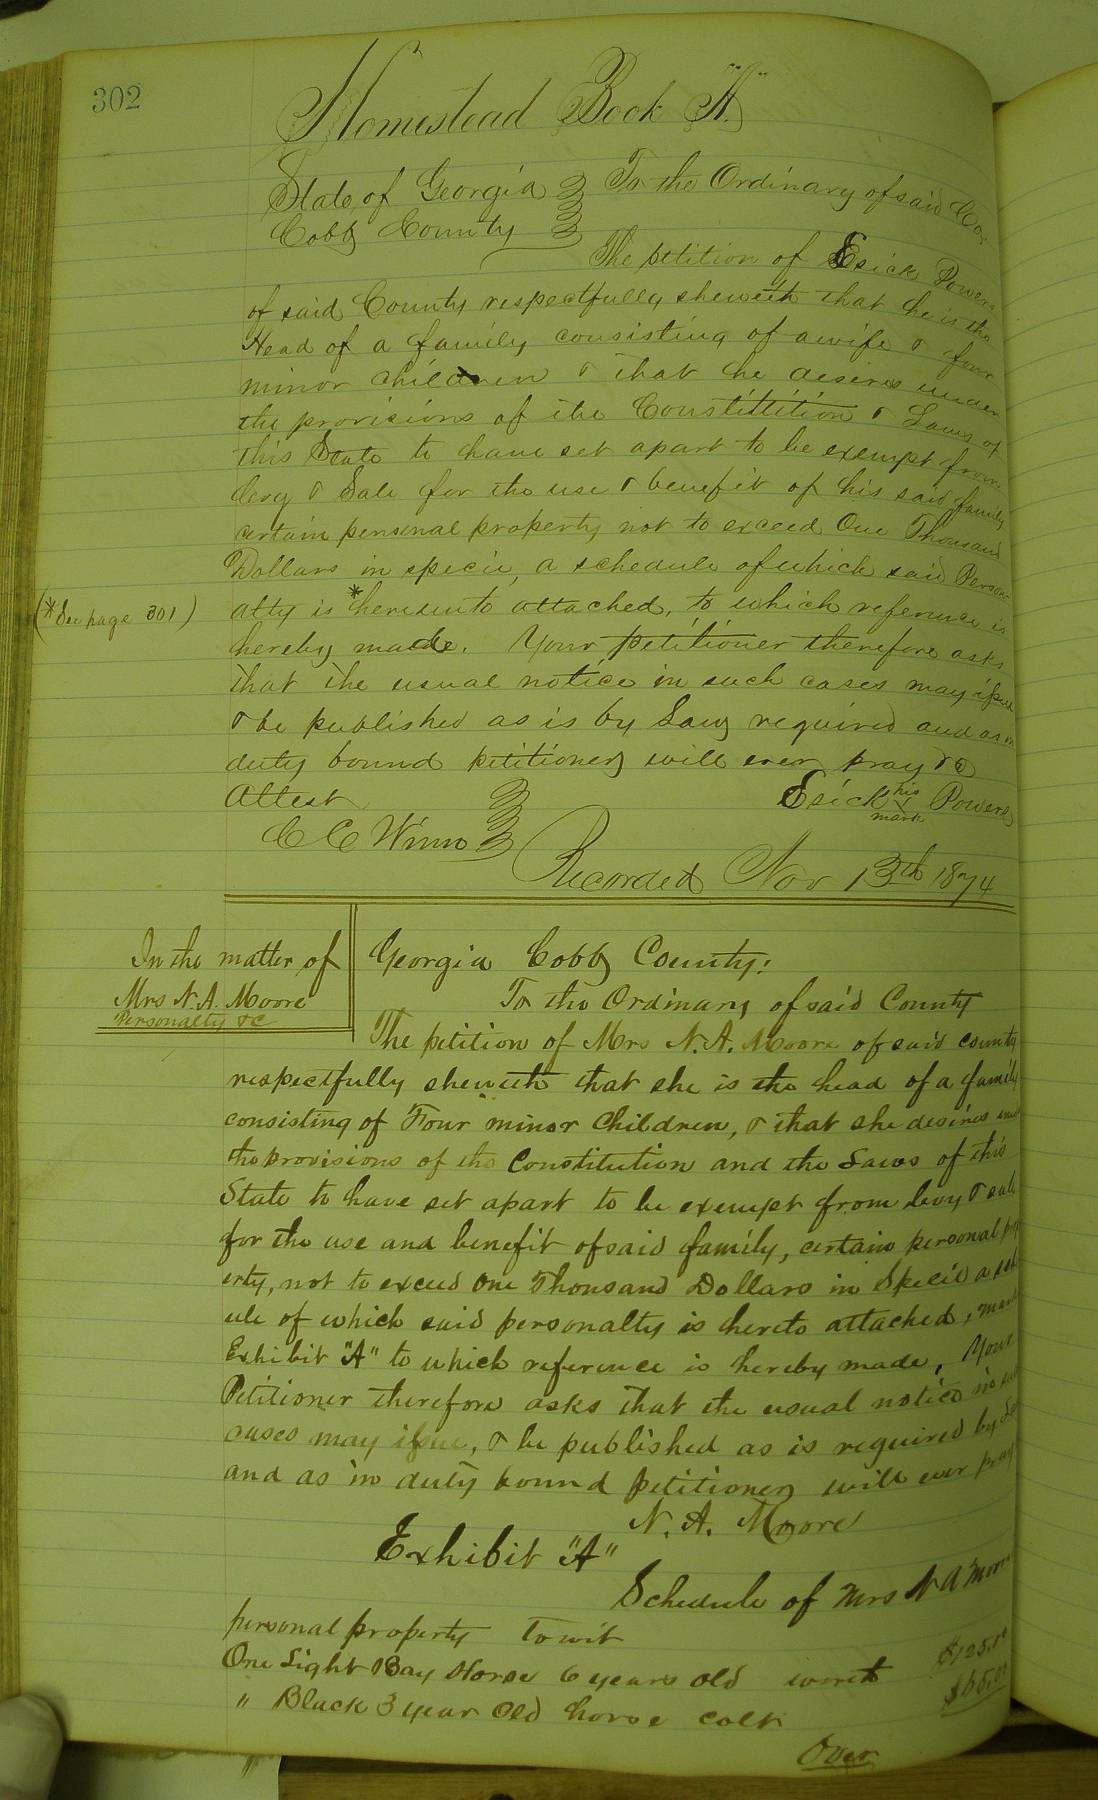 302
Homestead Book "A"
State of Georgia } To the Ordinary of said Co
Cobb County }
The petition of Esick Powers
of said County respectfully sheweth that he is the
Head of a family consisting of a wife & four
minor children & that he desires under
the provisions of the Constitution & Laws of
this State to have set apart to be exempt from
levy & Sale for the use & benefit of his said family
certain personal property not to exceed One Thousand
Dollars in specie, a schedule of which said Person
(*See page 301) alty is *hereunto attached, to which reference is
hereby made. Your petitioner therefore asks
that the usual notice in such cases may issue
& be published as is by Law required and as in
duty bound petitioner will ever pray &c
Attest Esick his Powers
mark
C C Winn
Recorded Nov 13th 1874
In the matter of
Mrs N. A. Moore
Personalty &c
Georgia Cobb County:
To the Ordinary of said County
The petition of Mrs N. A. Moore of said county
respectfully sheweth that she is the head of a family
consisting of Four minor Children, & that she desires
the provisions of the Constitution and the Laws of this
State to have set apart to be exempt from levy & sale
for the use and benefit of said family, certain personal
erty, not to exceed One Thousand Dollars in Specie a
ule of which said personalty is hereto attached,
Exhibit "A" to which reference is hereby made, Your
Petitioner therefore asks that the usual notice in
cases may issue, & be published as is required by
and as in duty bound petitioner will ever pray
N. A. Moore
Exhibit "A"
Schedule of Mrs N A Moore
personal property towit
One Light Bay Horse 6 years old worth $125.00
" Black 3 year Old horse colt
Over